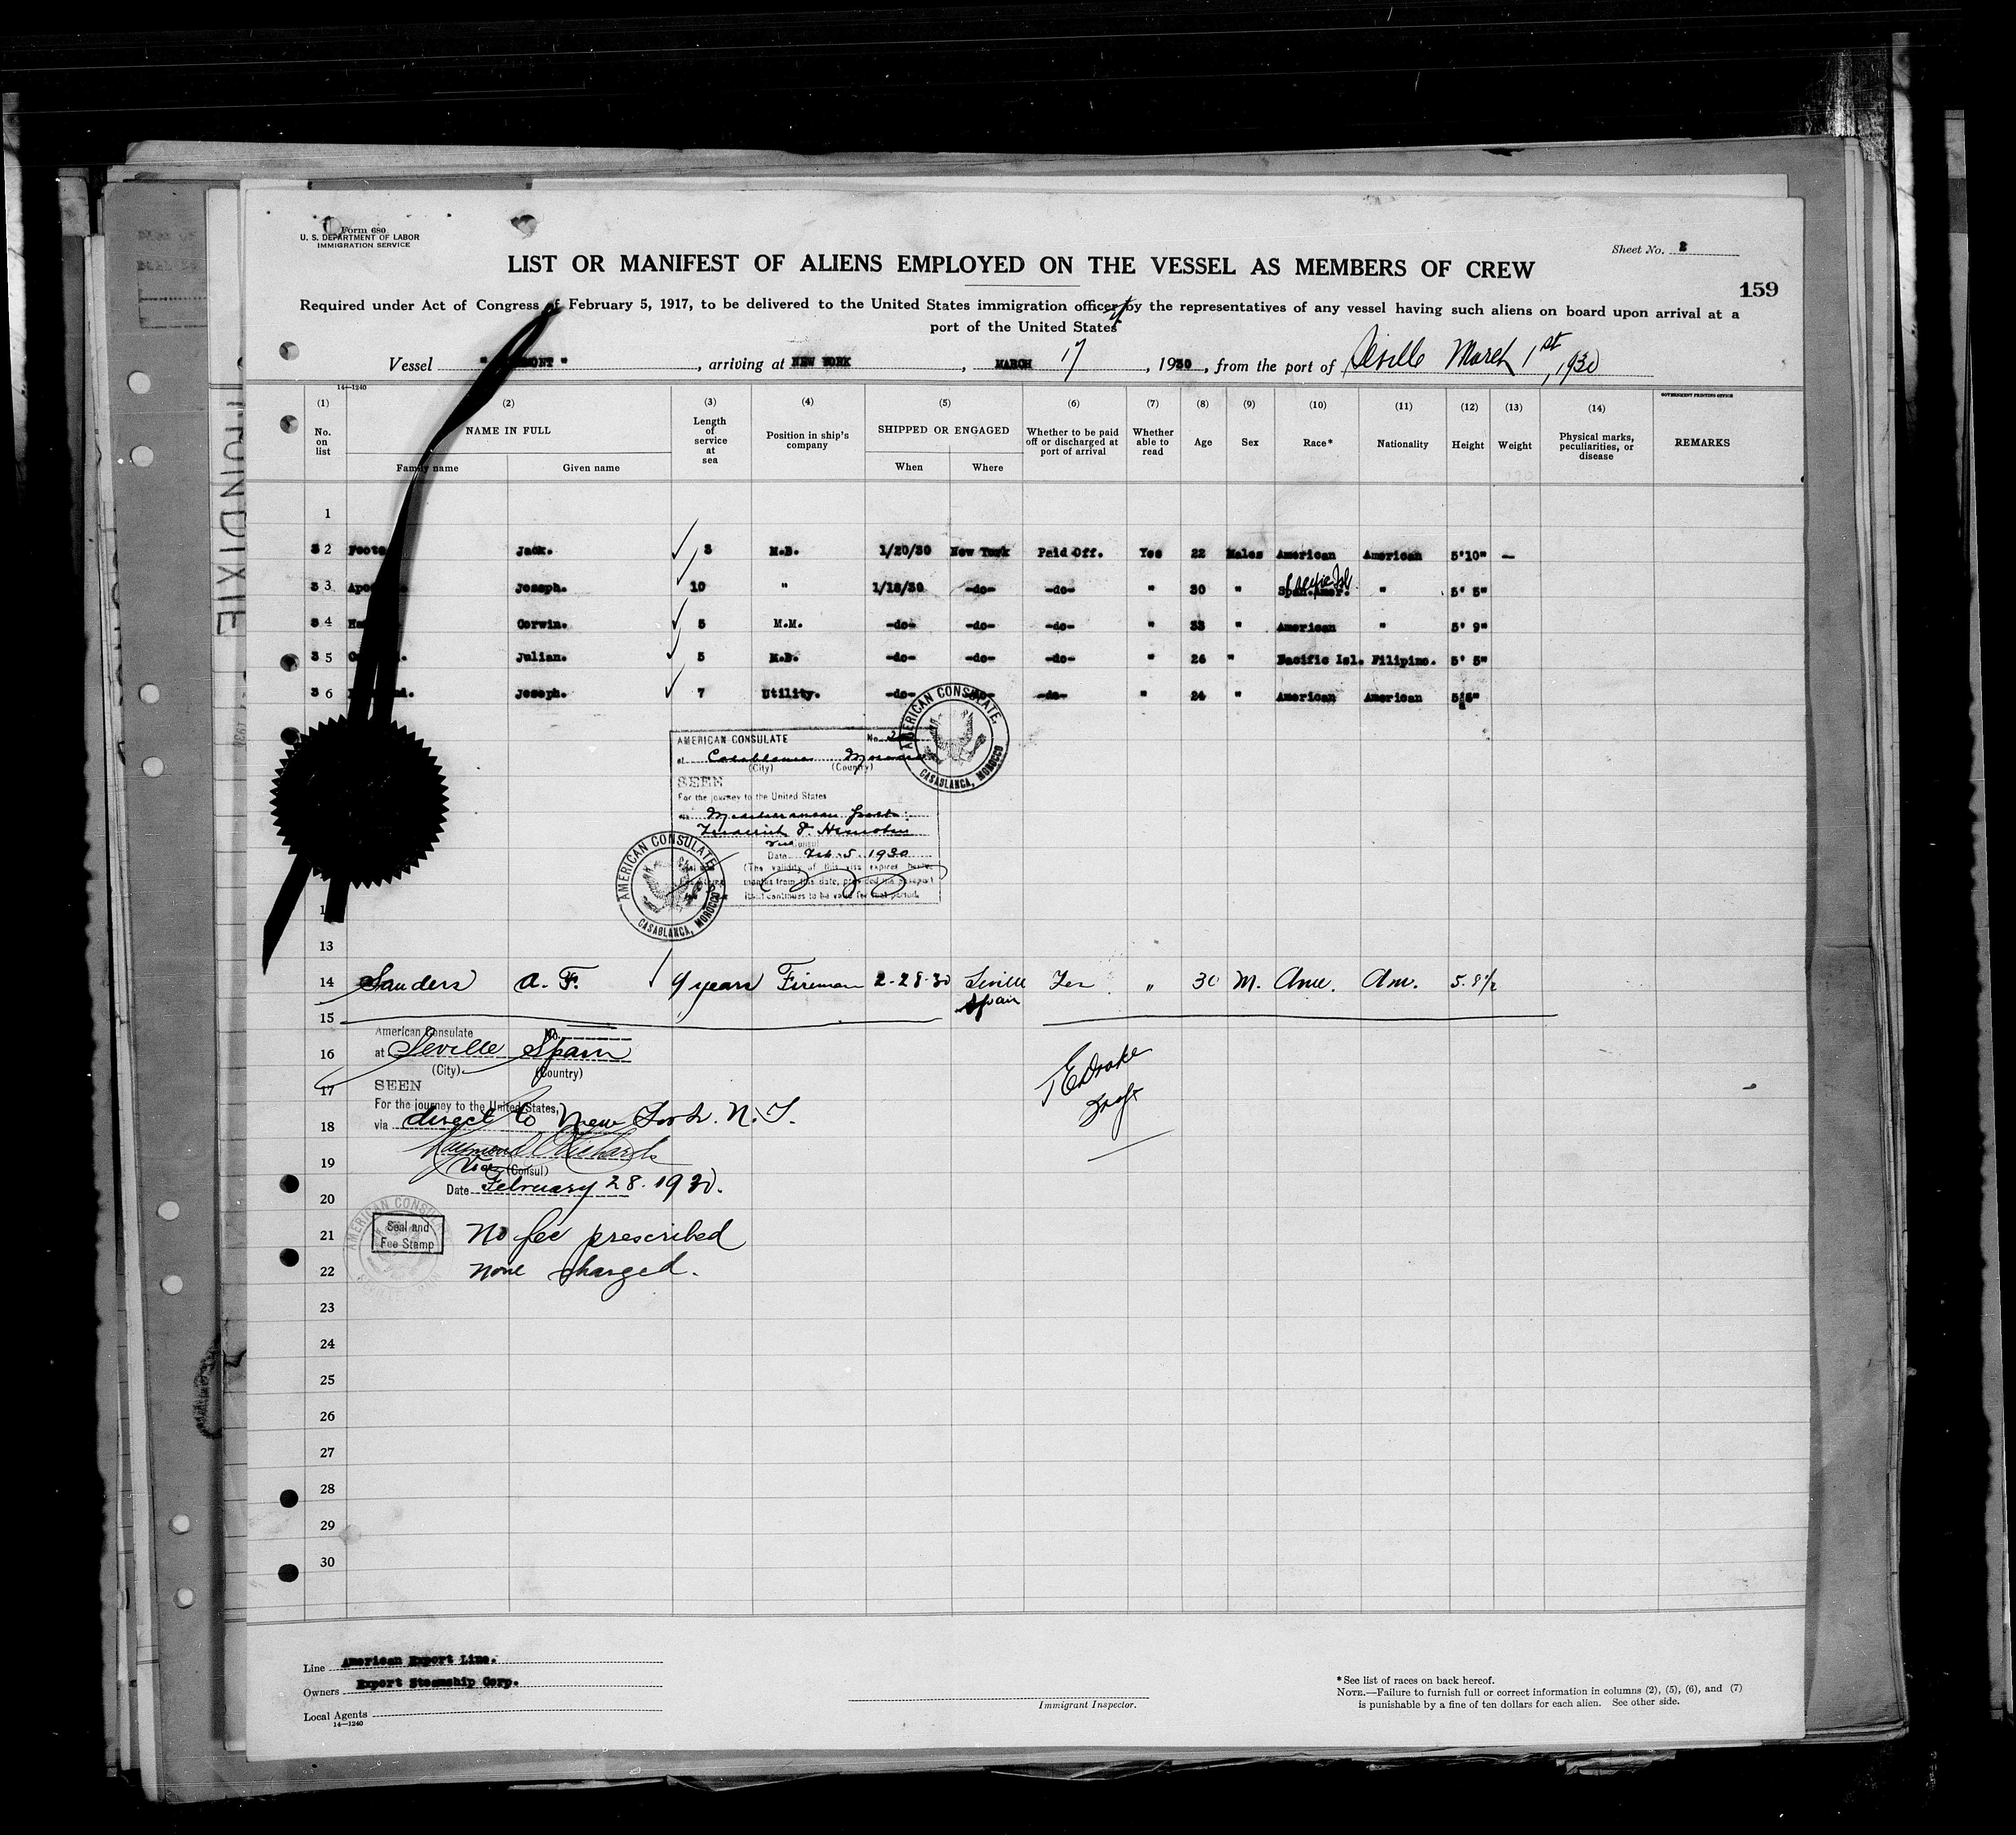 Form 680
U. S. DEPARTMENT OF LABOR
IMMIGRATION SERVICE
Sheet No. 2
LIST OR MANIFEST OF ALIENS EMPLOYED ON THE VESSEL AS MEMBERS OF CREW
159
Required under Act of Congress of February 5, 1917, to be delivered to the United States immigration officer by the representatives of any vessel having such aliens on board upon arrival at a
port of the United States
Vessel , arriving at NEW YORK , MARCH 17 , 1930 , from the port of Seville March 1st, 1930
14—1240
GOVERNMENT PRINTING OFFICE
(1) (2) (3) (4) (5) (6) (7) (8) (9) (10) (11) (12) (13) (14)
No. on list NAME IN FULL Length of service at sea Position in ship's company SHIPPED OR ENGAGED Whether to be paid off or discharged at port of arrival Whether able to read Age Sex Race* Nationality Height Weight Physical marks, peculiarities, or disease REMARKS
Family name Given name When Where
1
32 Jack. 3 M.B. 1/20/30 New York Paid Off. Yes 22 Males American American 5'10" —
33 Joseph. 10 " 1/18/30 -do- -do- " 30 " Span.Amer. Pacific Isl " 5' 5"
34 Corwin. 5 M.M. -do- -do- -do- " 33 " American " 5' 9"
35 Julian. 5 M.B. -do- -do- -do- " 26 " Pacific Isl. Filipino. 5' 5"
36 Joseph. 7 Utility. -do- -do- -do- " 24 " American American
AMERICAN CONSULATE No.
at Casablanca Morocco
(City) (Country)
SEEN
For the journey to the United States
via Mediterranean Ports.
Vice Consul
Date Feb. 5. 1930
(The validity of this visa expires twelve
months from this date, provided the passport
itself continues to be valid for that period.
AMERICAN CONSULATE, CASABLANCA, MOROCCO
AMERICAN CONSULATE, CASABLANCA, MOROCCO
13
14 Sanders A. F. 9 years Fireman 2-28-30 Seville Spain Yes " 30 M. Ame. Am. 5.8½
15
American Consulate No.
16 at Seville Spain
(City) (Country)
17 SEEN
For the journey to the United States,
18 via direct to New York. N.Y.
19 Vice (Consul)
Date February 28. 1930.
20
AMERICAN CONSULATE SEVILLE SPAIN
Seal and
Fee Stamp
21 No fee prescribed
22 None charged.
JEDrake
23
24
25
26
27
28
29
30
Line American Export Line.
Owners Export Steamship Corp.
Local Agents
14—1240
Immigrant Inspector.
*See list of races on back hereof.
NOTE.—Failure to furnish full or correct information in columns (2), (5), (6), and (7)
is punishable by a fine of ten dollars for each alien. See other side.